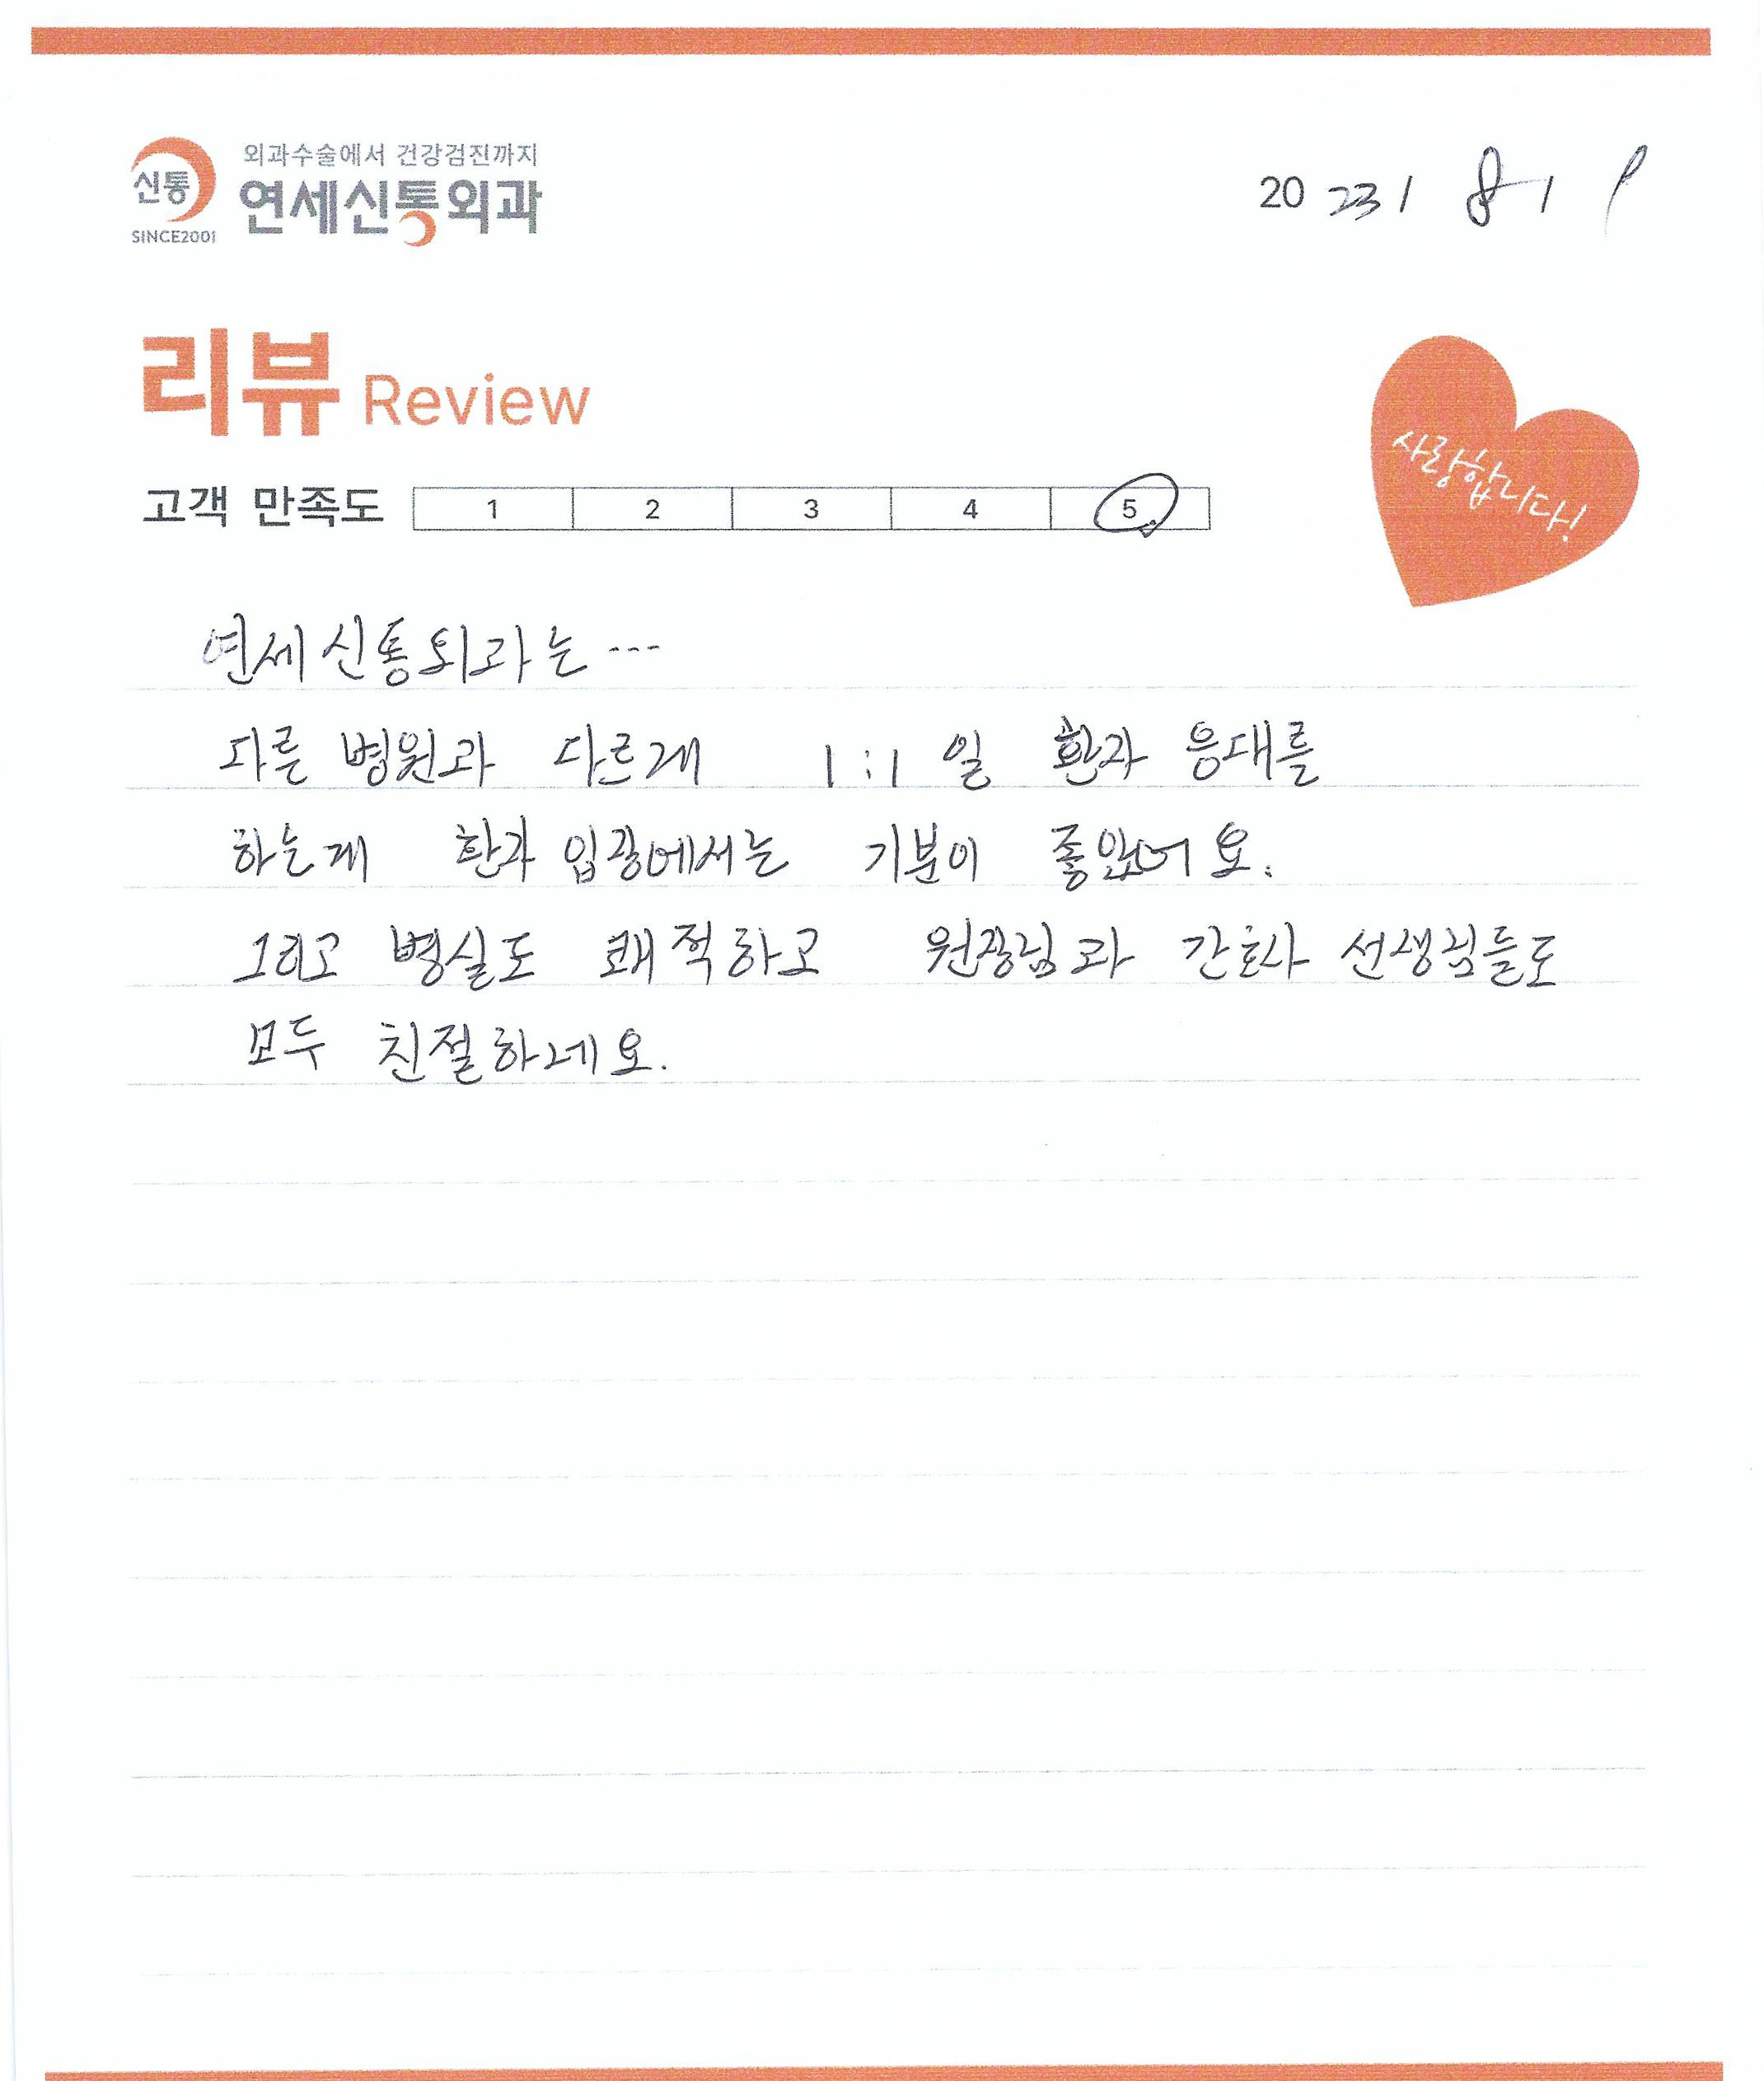 외과수술에서 건강검진까지
신통 연세신통외과
SINCE2001
2023 / 8 / 9
리뷰 Review
사랑합니다!
고객 만족도 1 2 3 4 5
연세신통외과는 ...
다른 병원과 다르게 1:1 일 환자 응대를
하는게 환자 입장에서는 기분이 좋았어요.
그리고 병실도 쾌적하고 원장님과 간호사 선생님들도
모두 친절하네요.